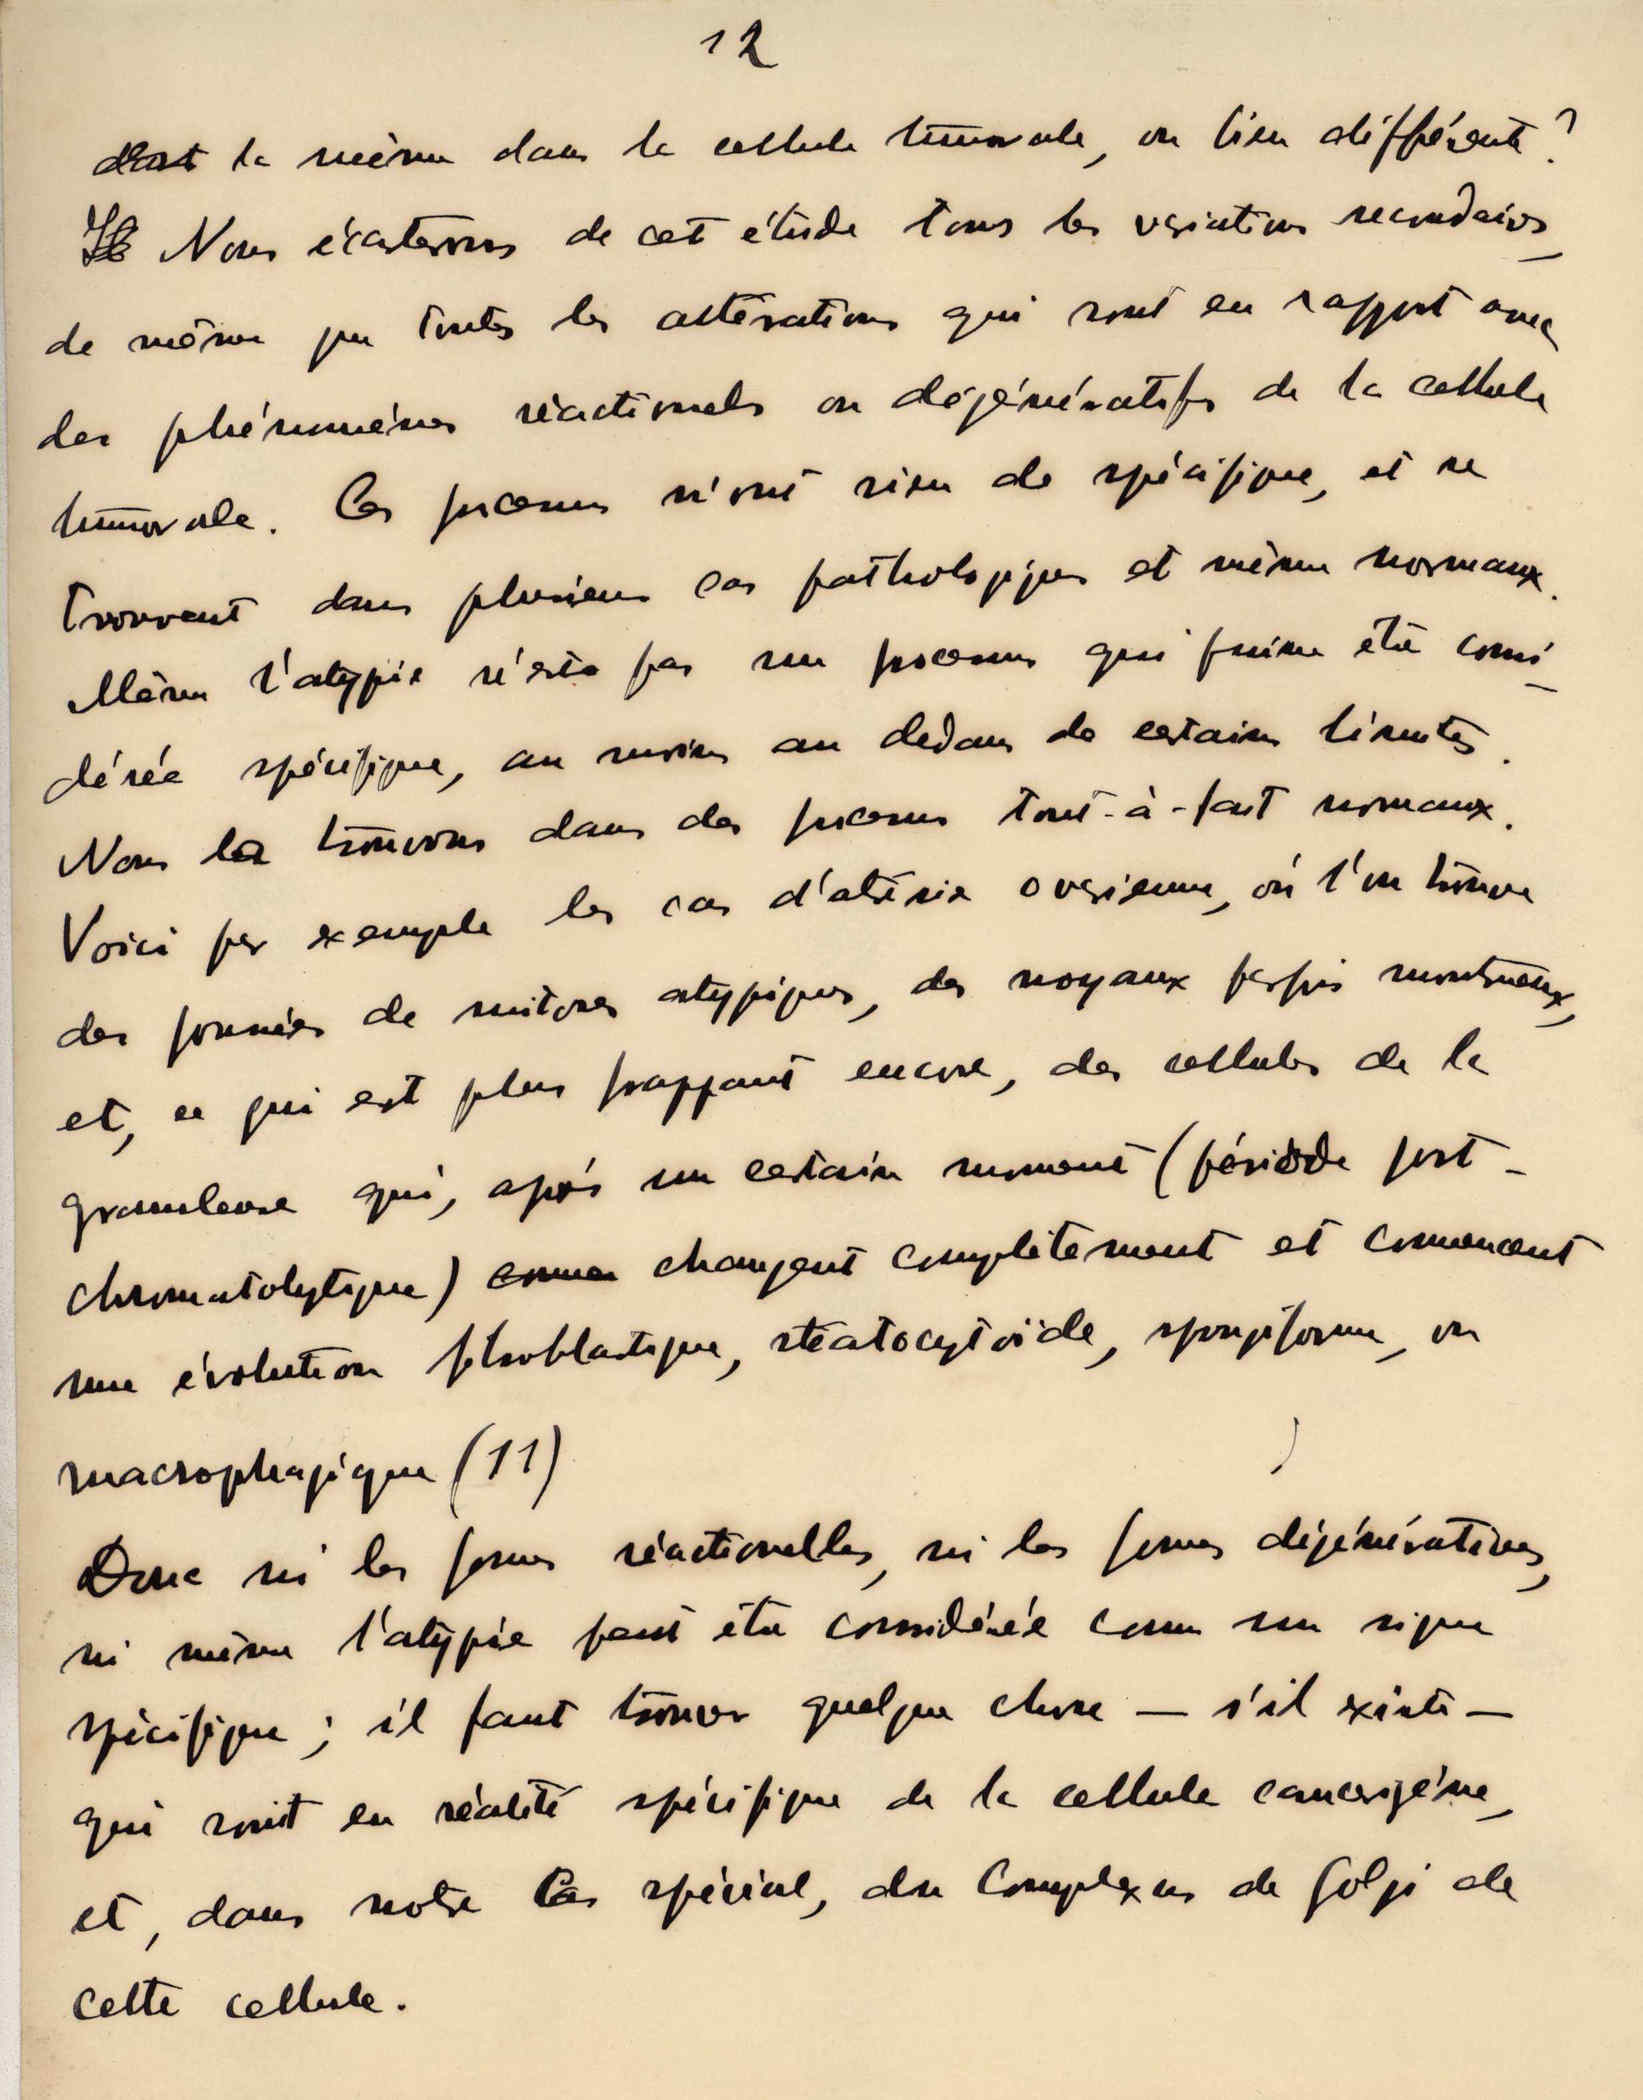 12
est la même dans la cellule tumorale, ou bien différente?
Nous écarterons de cet étude tous les variations secondaires,
de même que toutes les altérations qui sont en rapport avec
des phénomènes réactionnels ou dégénératifs de la cellule
tumorale. Ces processus n'ont rien de spécifique, et se
trouvent dans plusieurs cas pathologiques et même normaux.
Même l'atypie n'est pas un processus qui puisse être consi-
dérée spécifique, au moins au dedans de certains limites.
Nous la trouvons dans des processus tout-à-fait normaux.
Voici par exemple les cas d'atrésie ovarienne, où l'on trouve
des formes de mitoses atypiques, des noyaux parfois montrueux,
et, ce qui est plus frappant encore, des cellules de la
granuleuse qui, après un certain moment (période post-
chromatolytique) changent complètement et commencent
une évolution fibroblastique, stéatocytoïde, spongiforme, ou
macrophagique (11)
Donc ni les formes réactionelles, ni les formes dégénératives,
ni même l'atypie peut être considérée comme un signe
spécifique; il faut trouver quelque chose — s'il existe —
qui soit en réalité spécifique de la cellule cancerigène,
et, dans notre cas spécial, du Complexus de Golgi de
cette cellule.